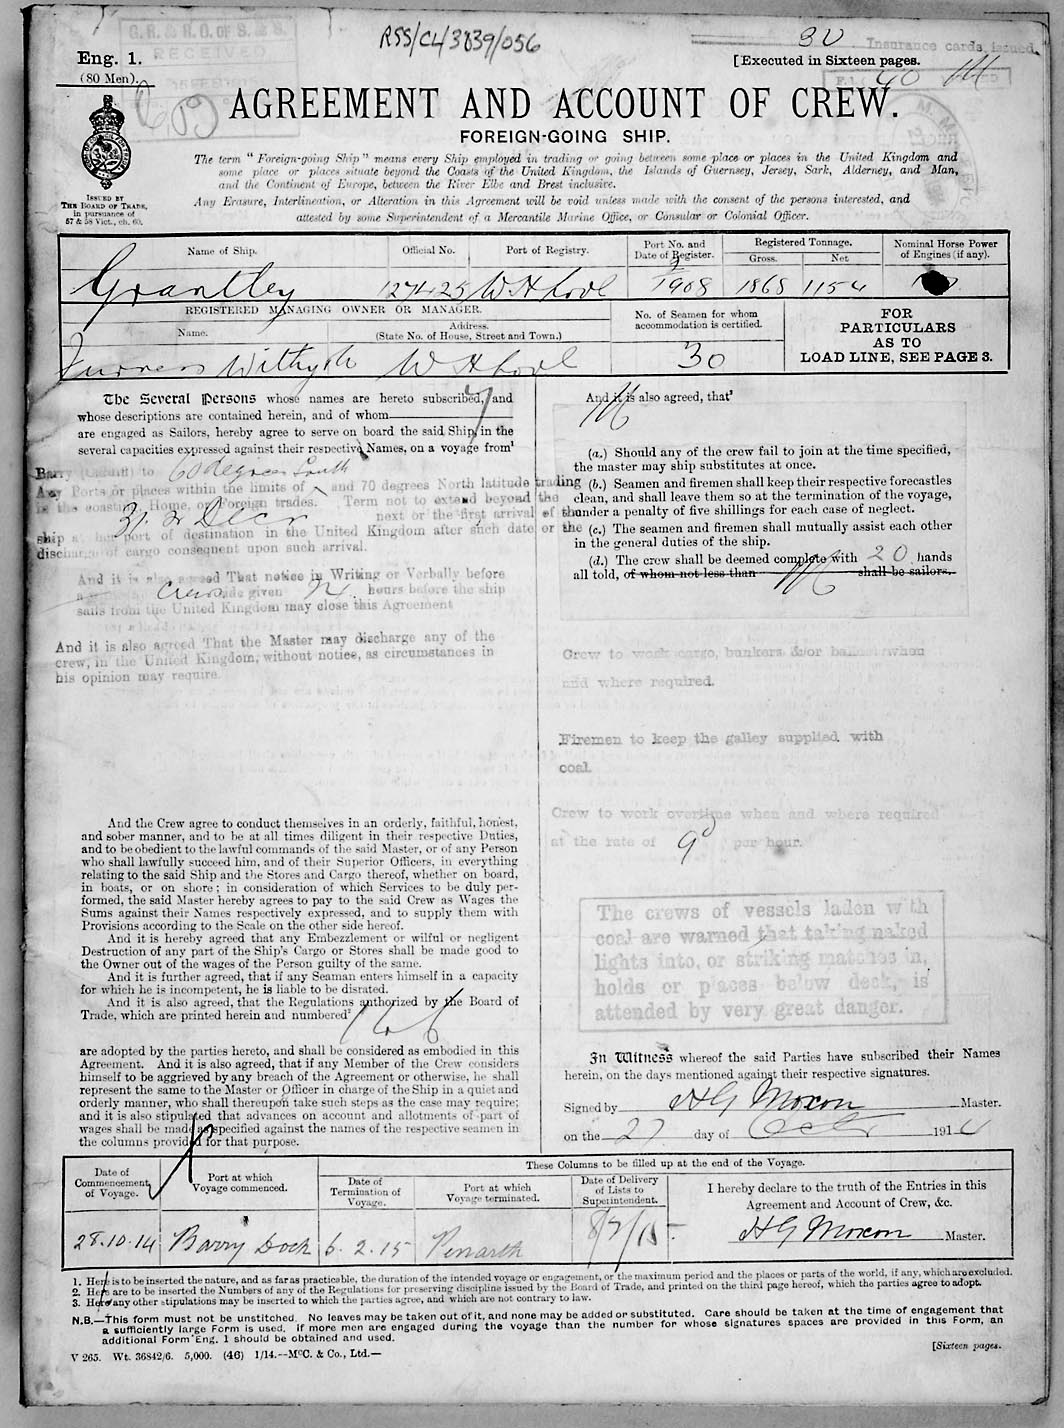 RSS/CL/3839/056
G. R. & R. O. of S. & S.
RECEIVED
Insurance cards issued.
Eng. 1.
(80 Men).
[Executed in Sixteen pages.
AGREEMENT AND ACCOUNT OF CREW.
FOREIGN-GOING SHIP.
The term "Foreign-going Ship" means every Ship employed in trading or going between some place or places in the United Kingdom and
some place or places situate beyond the Coasts of the United Kingdom, the Islands of Guernsey, Jersey, Sark, Alderney, and Man,
and the Continent of Europe, between the River Elbe and Brest inclusive.
Any Erasure, Interlineation, or Alteration in this Agreement will be void unless made with the consent of the persons interested, and
attested by some Superintendent of a Mercantile Marine Office, or Consular or Colonial Officer.
ISSUED BY
THE BOARD OF TRADE,
in pursuance of
57 & 58 Vict., ch. 60.
Name of Ship.
Official No.
Port of Registry.
Port No. and
Date of Register.
Registered Tonnage.
Gross.
Net
Nominal Horse Power
of Engines (if any).
Grantley
127425
W Hpool
1908
1868
1154
REGISTERED MANAGING OWNER OR MANAGER.
Name.
Address.
(State No. of House, Street and Town.)
No. of Seamen for whom
accommodation is certified.
FOR
PARTICULARS
AS TO
LOAD LINE, SEE PAGE 3.
Furness Withy
W Hpool
30
The Several Persons whose names are hereto subscribed, and
whose descriptions are contained herein, and of whom
are engaged as Sailors, hereby agree to serve on board the said Ship, in the
several capacities expressed against their respective Names, on a voyage from¹
Barry (Cardiff) to 60 degrees South
Any Ports or places within the limits of and 70 degrees North latitude trading
in the coasting, Home, or Foreign trades. Term not to extend beyond the
31st Decr next or the first arrival of the
ship at her port of destination in the United Kingdom after such date or the
discharge of cargo consequent upon such arrival.
And it is also agreed That notice in Writing or Verbally before
crew side given 24 hours before the ship
sails from the United Kingdom may close this Agreement
And it is also agreed That the Master may discharge any of the
crew, in the United Kingdom, without notice, as circumstances in
his opinion may require.
And the Crew agree to conduct themselves in an orderly, faithful, honest,
and sober manner, and to be at all times diligent in their respective Duties,
and to be obedient to the lawful commands of the said Master, or of any Person
who shall lawfully succeed him, and of their Superior Officers, in everything
relating to the said Ship and the Stores and Cargo thereof, whether on board,
in boats, or on shore; in consideration of which Services to be duly per-
formed, the said Master hereby agrees to pay to the said Crew as Wages the
Sums against their Names respectively expressed, and to supply them with
Provisions according to the Scale on the other side hereof.
And it is hereby agreed that any Embezzlement or wilful or negligent
Destruction of any part of the Ship's Cargo or Stores shall be made good to
the Owner out of the wages of the Person guilty of the same.
And it is further agreed, that if any Seaman enters himself in a capacity
for which he is incompetent, he is liable to be disrated.
And it is also agreed, that the Regulations authorized by the Board of
Trade, which are printed herein and numbered²
are adopted by the parties hereto, and shall be considered as embodied in this
Agreement. And it is also agreed, that if any Member of the Crew considers
himself to be aggrieved by any breach of the Agreement or otherwise, he shall
represent the same to the Master or Officer in charge of the Ship in a quiet and
orderly manner, who shall thereupon take such steps as the case may require;
and it is also stipulated that advances on account and allotments of part of
wages shall be made as specified against the names of the respective seamen in
the columns provided for that purpose.
And it is also agreed, that³
(a.) Should any of the crew fail to join at the time specified,
the master may ship substitutes at once.
(b.) Seamen and firemen shall keep their respective forecastles
clean, and shall leave them so at the termination of the voyage,
under a penalty of five shillings for each case of neglect.
(c.) The seamen and firemen shall mutually assist each other
in the general duties of the ship.
(d.) The crew shall be deemed complete with 20 hands
all told, of whom not less than shall be sailors.
Crew to work cargo, bunkers &/or ballast when
and where required.
Firemen to keep the galley supplied with
coal.
Crew to work overtime when and where required
at the rate of 9d per hour.
The crews of vessels laden with
coal are warned that taking naked
lights into, or striking matches in,
holds or places below deck, is
attended by very great danger.
In Witness whereof the said Parties have subscribed their Names
herein, on the days mentioned against their respective signatures.
Signed by H G Moxon Master.
on the 27 day of Octr 1914
Date of
Commencement
of Voyage.
Port at which
Voyage commenced.
These Columns to be filled up at the end of the Voyage.
Date of
Termination of
Voyage.
Port at which
Voyage terminated.
Date of Delivery
of Lists to
Superintendent.
I hereby declare to the truth of the Entries in this
Agreement and Account of Crew, &c.
28.10.14
Barry Dock
6.2.15
Penarth
8/2/15
H G Moxon Master.
1. Here is to be inserted the nature, and as far as practicable, the duration of the intended voyage or engagement, or the maximum period and the places or parts of the world, if any, which are excluded.
2. Here are to be inserted the Numbers of any of the Regulations for preserving discipline issued by the Board of Trade, and printed on the third page hereof, which the parties agree to adopt.
3. Here any other stipulations may be inserted to which the parties agree, and which are not contrary to law.
N.B.—This form must not be unstitched. No leaves may be taken out of it, and none may be added or substituted. Care should be taken at the time of engagement that
a sufficiently large Form is used. If more men are engaged during the voyage than the number for whose signatures spaces are provided in this Form, an
additional Form Eng. 1 should be obtained and used.
V 265. Wt. 36842/6. 5,000. (46) 1/14.—McC. & Co., Ltd.—
[Sixteen pages.